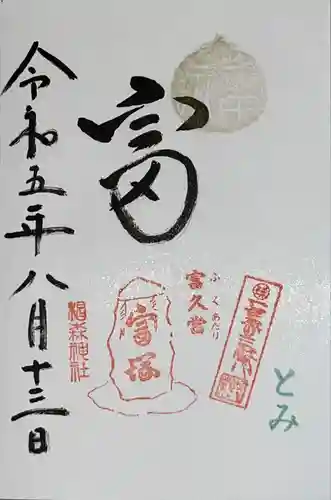 富
ふくあたり
富久當
富塚
とみ
令和五年八月十三日
椙森神社